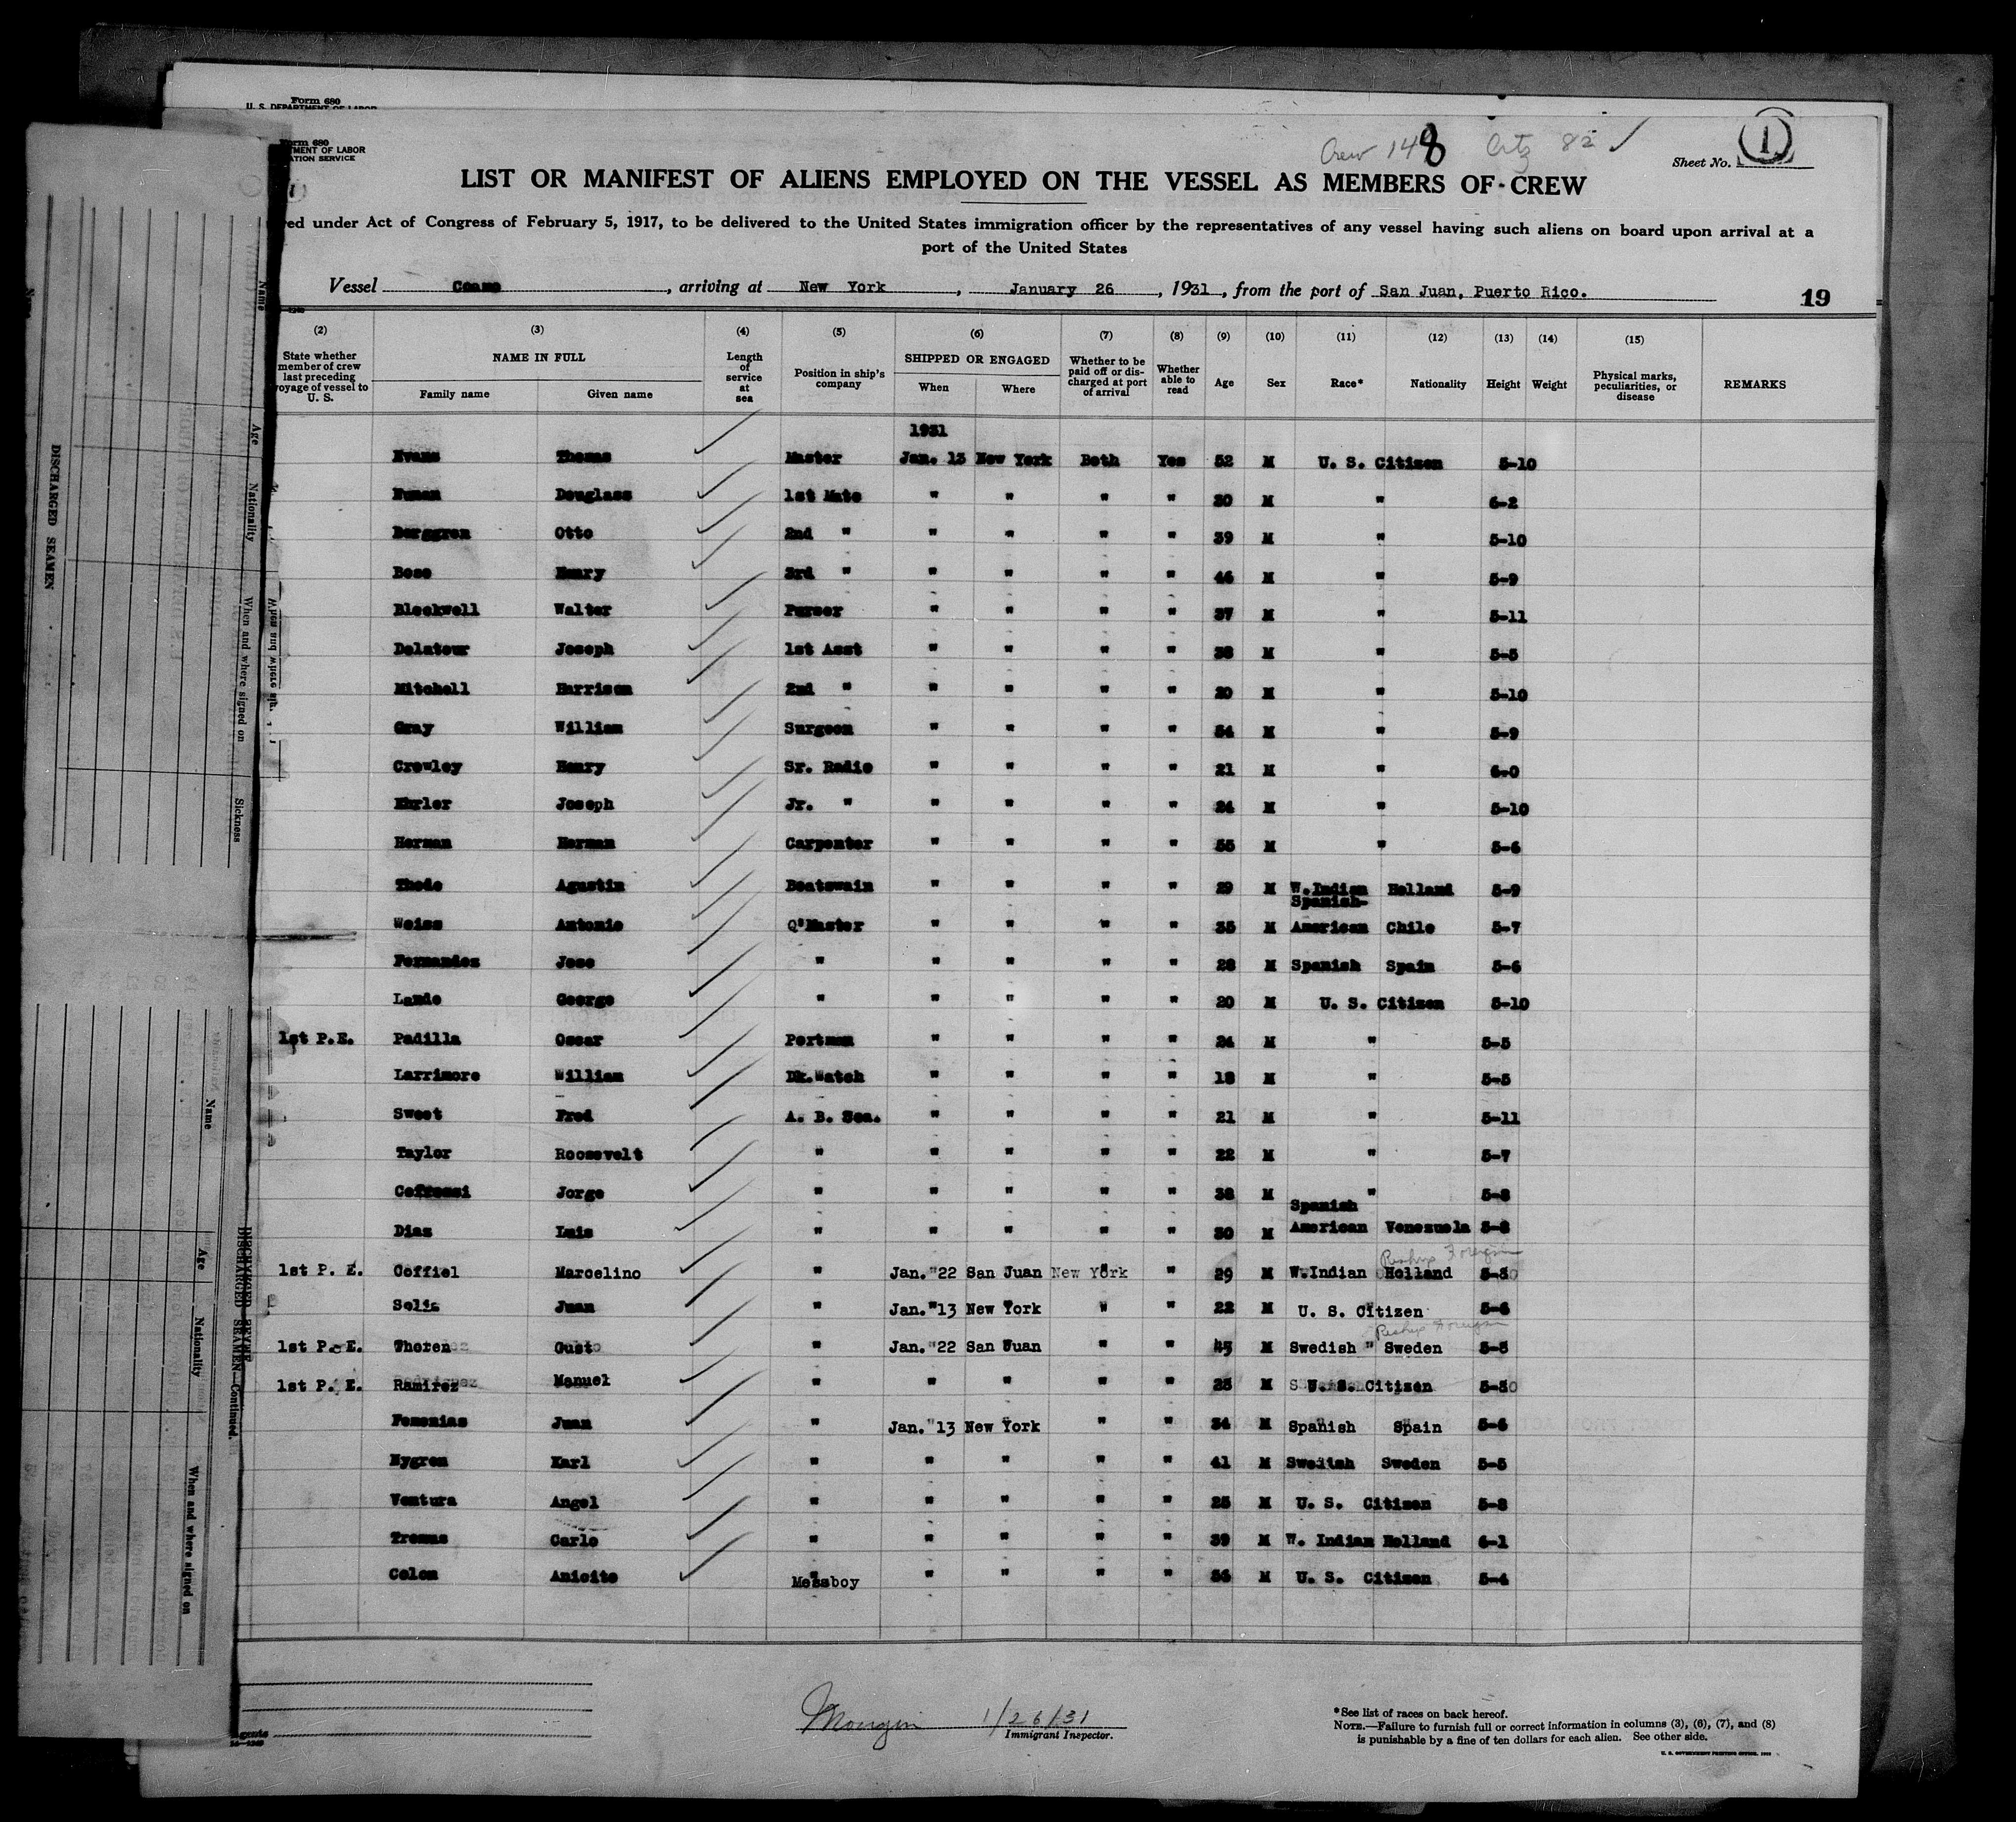 Form 680
U. S. DEPARTMENT OF LABOR
Form 680
TMENT OF LABOR
ATION SERVICE
Crew 148 Citz 82 ✓
Sheet No. 1
LIST OR MANIFEST OF ALIENS EMPLOYED ON THE VESSEL AS MEMBERS OF CREW
red under Act of Congress of February 5, 1917, to be delivered to the United States immigration officer by the representatives of any vessel having such aliens on board upon arrival at a
port of the United States
Vessel Coamo, arriving at New York, January 26, 1931, from the port of San Juan, Puerto Rico.
19
(2) (3) (4) (5) (6) (7) (8) (9) (10) (11) (12) (13) (14) (15)
State whether member of crew last preceding voyage of vessel to U. S. NAME IN FULL Family name Given name Length of service at sea Position in ship's company SHIPPED OR ENGAGED When Where Whether to be paid off or discharged at port of arrival Whether able to read Age Sex Race* Nationality Height Weight Physical marks, peculiarities, or disease REMARKS
1931
Evans Thomas Master Jan. 13 New York Both Yes 52 M U. S. Citizen 5-10
Numan Douglass 1st Mate " " " " 30 M " 6-2
Berggren Otto 2nd " " " " " 39 M " 5-10
Bose Henry 3rd " " " " " 46 M " 5-9
Blackwell Walter Purser " " " " 37 M " 5-11
Delatour Joseph 1st Asst " " " " 38 M " 5-5
Mitchell Harrison 2nd " " " " " 20 M " 5-10
Gray William Surgeon " " " " 54 M " 5-9
Crowley Henry Sr. Radio " " " " 21 M " 6-0
Ehrler Joseph Jr. " " " " " 24 M " 5-10
Herman Herman Carpenter " " " " 55 M " 5-6
Thode Agustin Boatswain " " " " 29 M W.Indian Holland 5-9
Weiss Antonio Q'Master " " " " 35 M Spanish-American Chile 5-7
Fernandez Jose " " " " " 28 M Spanish Spain 5-6
Lande George " " " " " 20 M U. S. Citizen 5-10
1st P.E. Padilla Oscar Portman " " " " 24 M " 5-5
Larrimore William Dk.Watch " " " " 18 M " 5-5
Sweet Fred A. B. Sea. " " " " 21 M " 5-11
Taylor Roosevelt " " " " " 22 M " 5-7
Jorge " " " " " 38 M " 5-8
Diaz Luis " " " " " 30 M Spanish American Venezuela 5-8
Reship Foreign
1st P. E. Coffiel Marcelino " Jan. 22 San Juan New York " 29 M W.Indian Holland 5-5
Solis Juan " Jan. 13 New York " " 22 M U. S. Citizen 5-6
Reship Foreign
1st P. E. Thoren Gust " Jan. 22 San Juan " " 45 M Swedish Sweden 5-5
1st P. E. Ramirez Manuel " " " " " 23 M U. S. Citizen 5-5
Femenias Juan " Jan. 13 New York " " 34 M Spanish Spain 5-6
Nygren Karl " " " " " 41 M Swedish Sweden 5-5
Ventura Angel " " " " " 25 M U. S. Citizen 5-8
Tromus Carlo " " " " " 39 M W. Indian Holland 6-1
Colon Anicito Messboy " " " " 36 M U. S. Citizen 5-4
Mongin 1/26/31
Immigrant Inspector.
*See list of races on back hereof.
NOTE.—Failure to furnish full or correct information in columns (3), (6), (7), and (8)
is punishable by a fine of ten dollars for each alien. See other side.
U. S. GOVERNMENT PRINTING OFFICE
gents
DISCHARGED SEAMEN
Name
Age
Nationality
When and where signed on
Sickness
DISCHARGED SEAMEN—Continued.
Name
Age
Nationality
When and where signed on